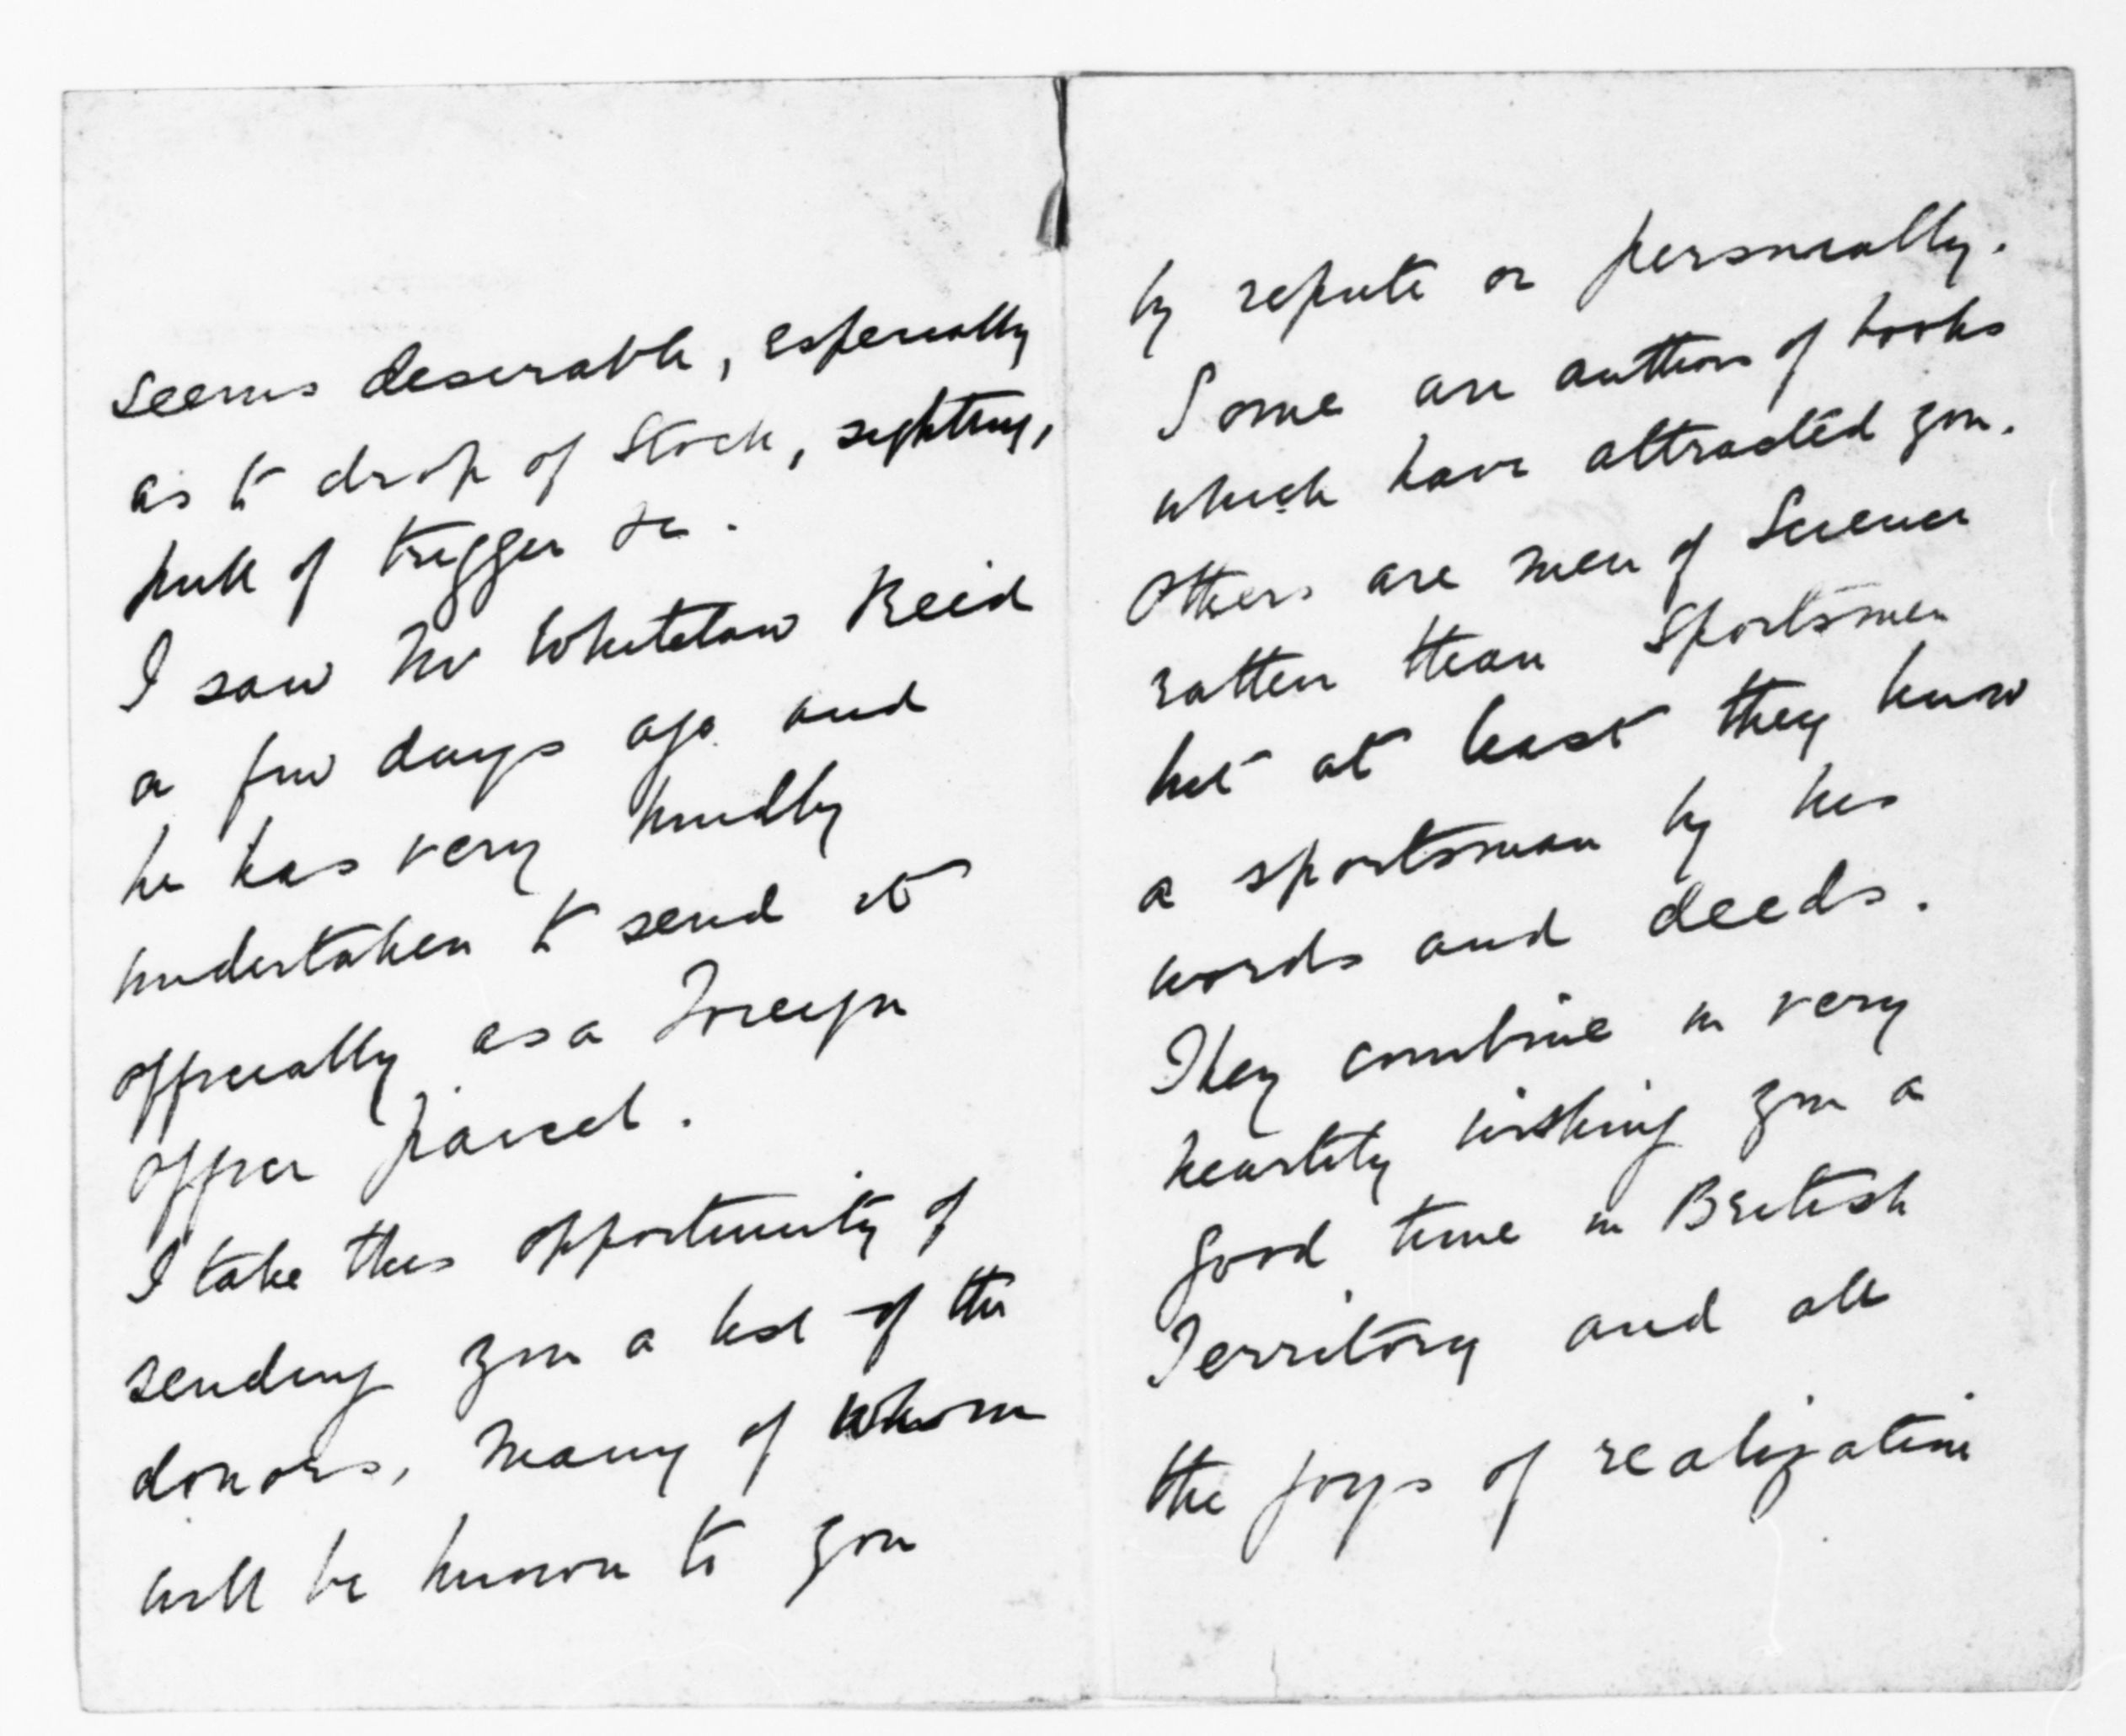 seems desirable, especially
as to drop of stock, sighting,
pull of trigger &c.
I saw Mr Whitelaw Reid
a few days ago and
he has very kindly
undertaken to send it
officially as a Foreign
Office parcel.
I take this opportunity of
sending you a list of the
donors, many of whom
will be known to you
by repute or personally.
Some are authors of books
which have attracted you.
Others are men of Science
rather than Sportsmen
but at least they know
a sportsman by his
words and deeds.
They combine in very
heartily wishing you a
good time in British
Territory and all
the joys of realization